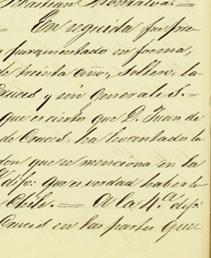 Sebastian Montalva. —
En seguida fue pre
y juramentado en forma,
de treinta años, soltero, la
Cruces y sin generales. —
que es cierto que D. Juan de
de Cruces, ha levantado la
don que se menciona en la
que es verdad haberle
Chile. — A la 4ª dijo
Cruces en las partes que